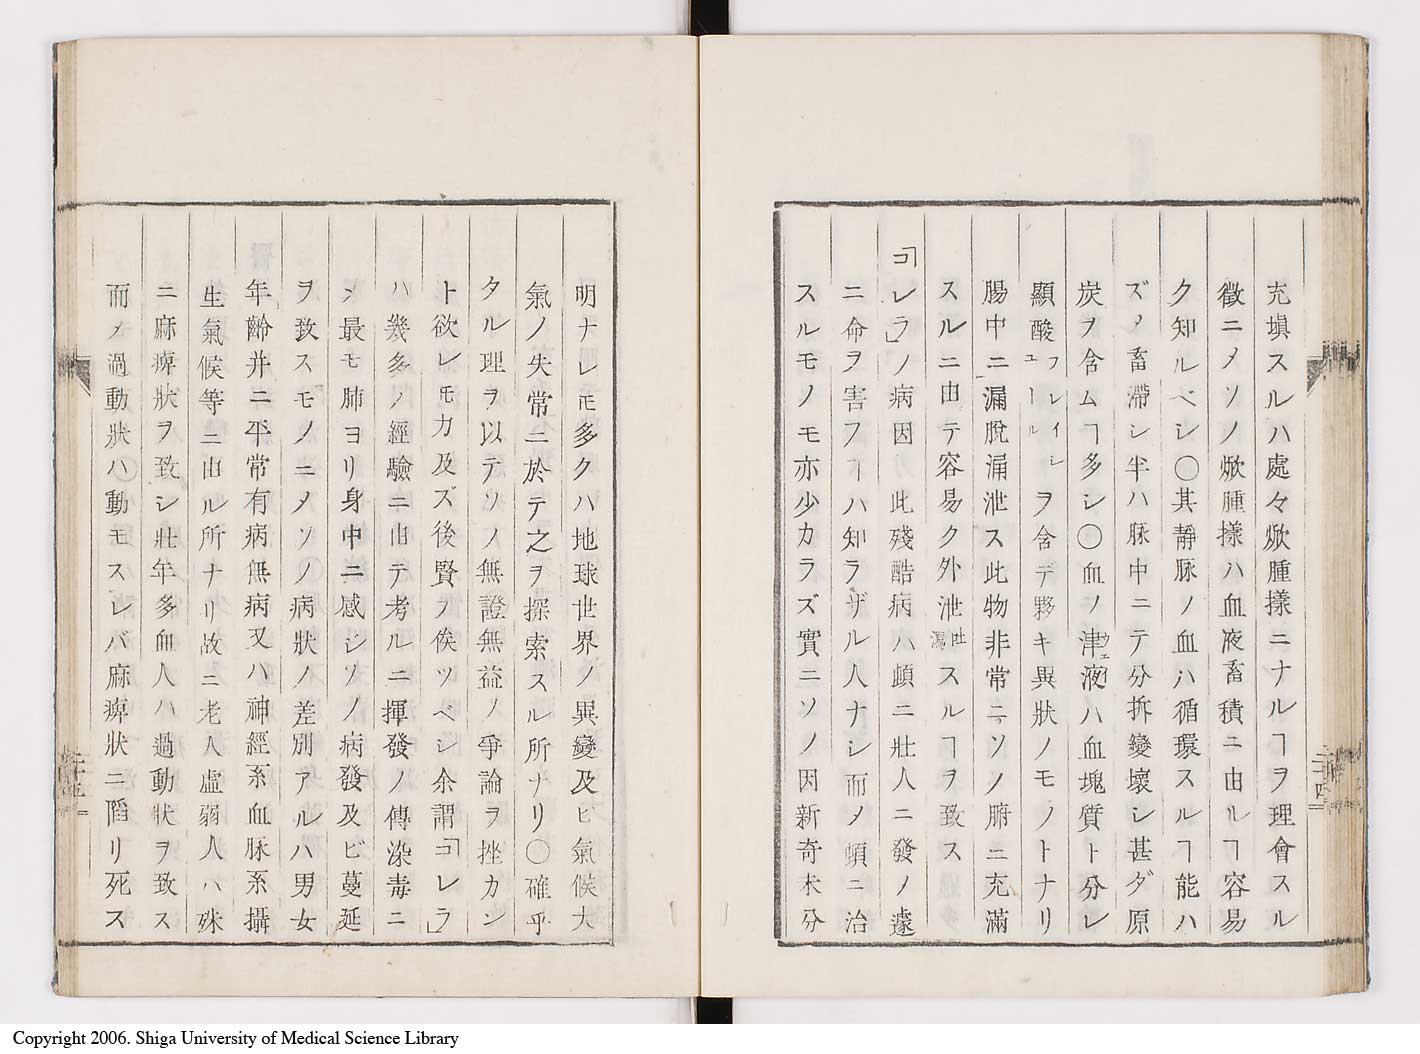 充塡スルハ處々焮腫様ニナルヿヲ理會スル
徴ニメソノ焮腫様ハ血液畜積ニ由ルヿ容易
ク知ルベシ〇其靜脉ノ血ハ循環スルヿ能ハ
ズメ畜滯シ半ハ脉中ニテ分拆變壞シ甚ダ原
炭ヲ含ムヿ多シ〇血ノ津液ハ血塊質ト分レ
顯酸フレイシユールヲ含デ夥キ異狀ノモノトナリ
腸中ニ漏脫漏泄ス此物非常ニソノ腑ニ充滿
スルニ由テ容易ク外泄吐瀉スルヿヲ致ス
「コレラ」ノ病因 此殘酷病ハ頗ニ壯人ニ發メ遽
ニ命ヲ害フヿハ知ラザル人ナシ而メ頓ニ治
スルモノモ亦少カラズ實ニソノ因新奇未分
二十四
明ナレモ多クハ地球世界ノ異變及ヒ氣候大
氣ノ失常ニ於テ之ヲ探索スル所ナリ〇確乎
タル理ヲ以テソノ無證無益ノ爭論ヲ挫カン
ト欲レモ力及ズ後賢ヲ俟ツベシ余謂「コレラ」
ハ幾多ノ經驗ニ由テ考ルニ揮發ノ傳染毒ニ
メ最モ肺ヨリ身中ニ感ジソノ病發及ビ蔓延
ヲ致スモノニメソノ病狀ノ差別アルハ男女
年齡并ニ平常有病無病又ハ神經系血脉系攝
生氣候等ニ由ル所ナリ故ニ老人虛弱人ハ殊
ニ麻痺狀ヲ致シ壯年多血人ハ過動狀ヲ致ス
而メ過動狀ハ〇動モスレバ麻痺狀ニ陷リ死ス
二十五
Copyright 2006. Shiga University of Medical Science Library